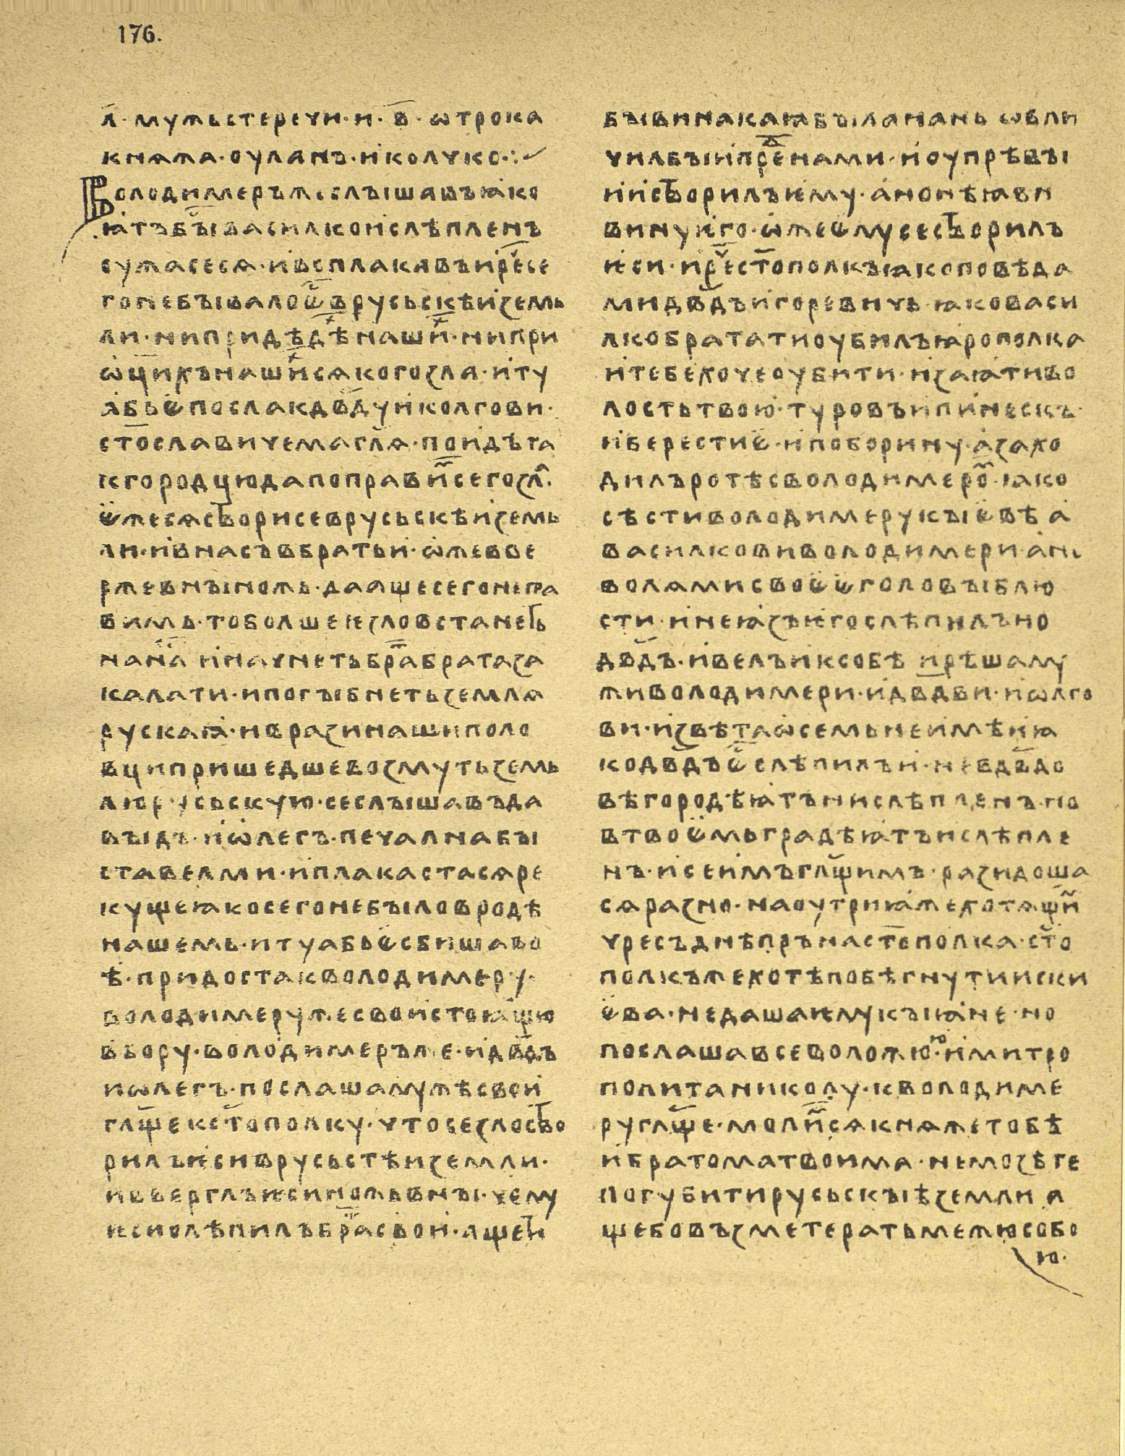 176.
л҃· мужь стеречи· и· в҃· ѡтрока
кнѧжа· оуланъ· и колчко ⁘
Володимеръ ж слышавъ ꙗко
ꙗтъ бы василко и слѣпленъ
оужасесѧ· и въсплакавъ и рⷱ҇е се
го не бывало єⷭ҇ въ русьскѣи земь
ли· ни при дѣдⷯ҇ѣ нашиⷯ҇· ни при
ѡц҃ихъ нашиⷯ сѧкого зла· и ту
абьє посла к дв҃ду и к олгови·
ст҃ославичема гл҃ѧ· поидѣта
к городцю да поправиⷨ҇ сего зл̑·
єже сѧ створи се в русьскѣи земь
ли· и в насъ в братьи· ѡже вве
рже в ны ножь· да аще сего не пра
вимъ· то болше и зло встанеть
на на́· и начнеть браⷮ҇ брата за
калати· и погыбнеть землѧ
рускаꙗ· и врази наши поло
вци пришедше возмуть земь
лю русьскую· се слышавъ да
выдъ· и ѡлегъ· печална бы
ста велми· и плакастасѧ ре
куще ꙗко сего не было в родѣ
нашемь· и ту абьє собраша во
ѣ· придоста к володимеру·
володимеру же с вои стоꙗщю
в бору· володимеръ же· и дв҃дъ
и ѡлегъ· послаша мужѣ свои
гл҃ще к ст҃ополку· что се зло ство
рилъ иси в русьстѣи земли·
и ввергъ иси ножь в ны· чему
иси ослѣпилъ браⷮ҇ свои· аще ти
бы вина каꙗ была на нь ѡбли
чилъ бы и преⷣ҇ нами· и оупрѣвъ
и и створилъ ему· а нонѣ ꙗви
вину иго· ѡже ему се створилъ
иси· и рⷱ҇е ст҃ополкъ ꙗко повѣда
ми дв҃дъ игоревичь ꙗко васи
лко брата ти оубилъ ꙗрополка
и тебе хочет оубити· и заꙗти во
лость твою· туровъ и пинескъ·
и берестиє· и поборину· а захо
дилъ ротѣ с володимероⷨ҇· ꙗко
сѣсти володимеру кыєвѣ а
василкови володимери· а не
волѧ ми своєє головы блю
сти· и не ꙗзъ иго слѣпилъ но
дв҃дъ· и велъ и к собѣ и рѣша му
жи володимери· и дв҃дви· и ѡлго
ви· извѣта ѡ семь не имѣи ꙗ
ко дв҃дъ єⷭ҇ слѣпилъ и· не в дв҃до
вѣ городѣ ꙗтъ ни слѣпленъ но
в твоємь градѣ ꙗтъ и слѣпле
нъ· и се имъ гл҃щимъ· разидоша
сѧ разно· наоутриꙗ же хотѧщиⷨ҇
чресъ днѣпръ на ст҃ополка· ст҃о
полкъ же хотѣ побѣгнути ис ки
єва· не даша ему кыꙗне· но
послаша всеволожюю· и митро
полита николу· к володиме
ру гл҃ще· молиⷨ҇сѧ кнѧже тобѣ
и братома твоима· не мозѣте
погубити русьскыѣ земли а
ще бо възмете рать межю собо
ю·